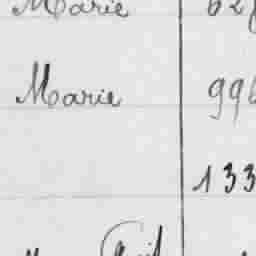 Marie 62
Marie 996
133